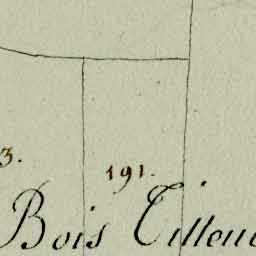 3.
191.
Bois Tilleu